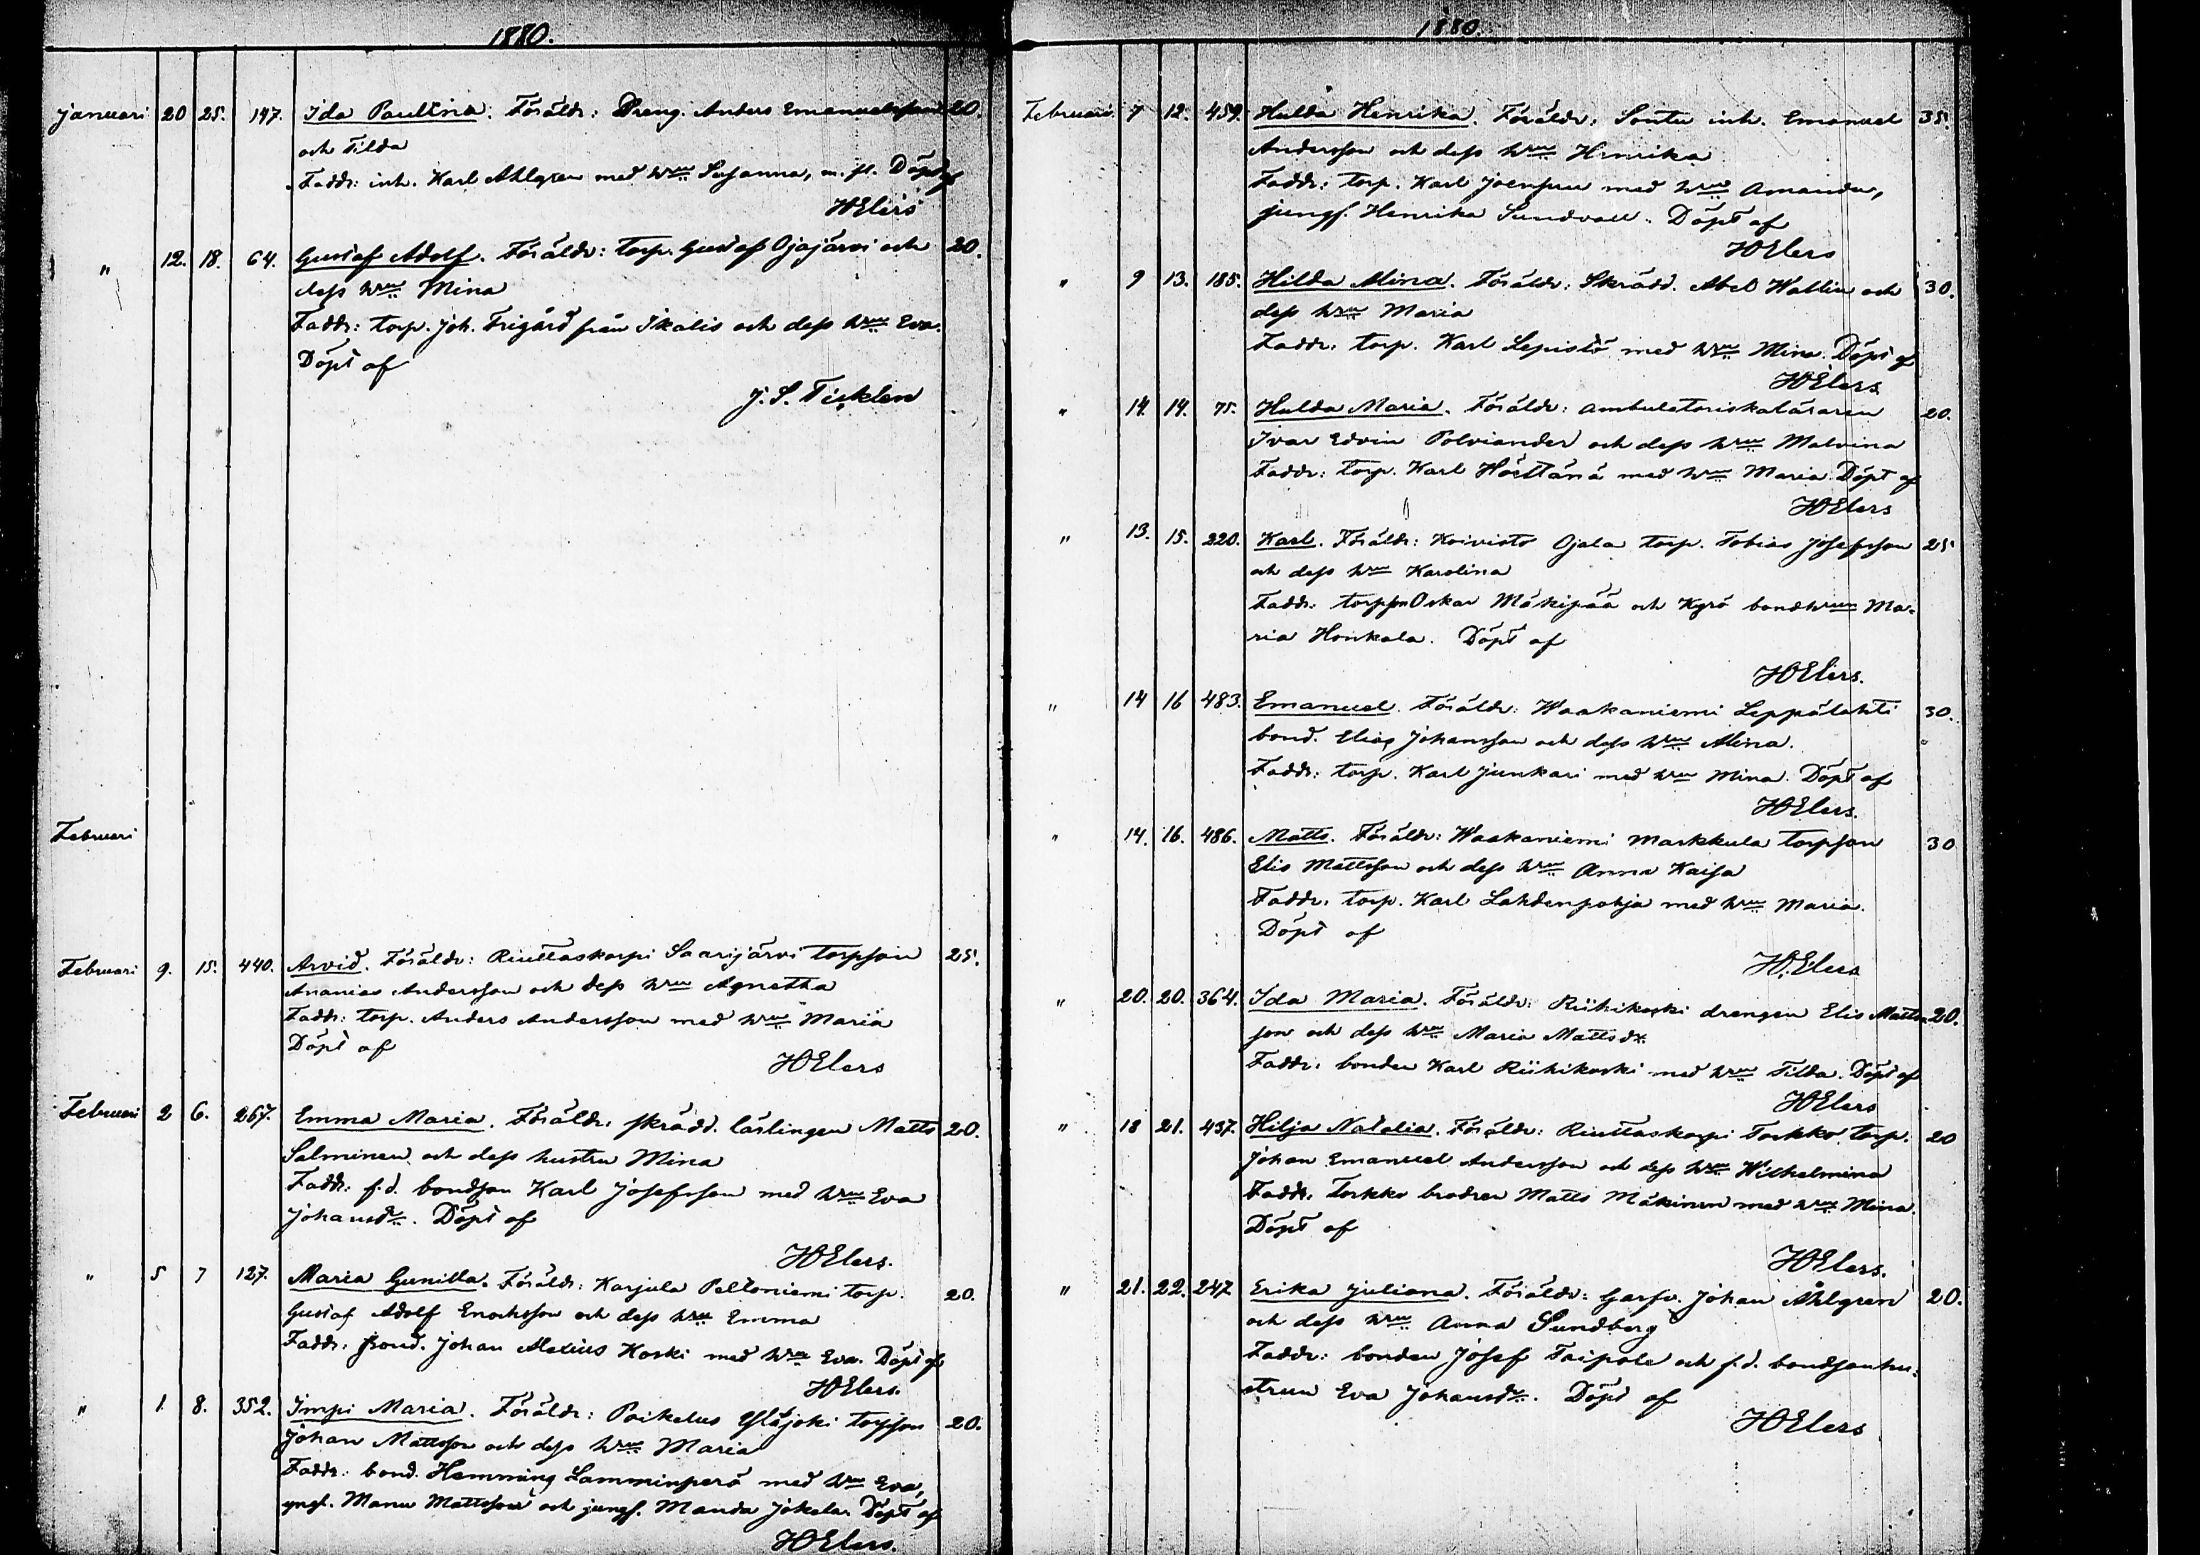 1880.
Januari 20 25. 147. Ida Paulina. Föräldr: Dreng. Anders Emanuelsson 20.
och Tilda
Faddr: inh. Karl Ahlgren med hru Susanna, m. fl. Döpt af
HElers
" 12. 18. 64. Gustaf Adolf. Föräldr: torp. Gustaf Ojajärvi och 20.
dess hru Mina
Faddr: torp. Joh. Frigård från Ikalis och dess hru Eva.
Döpt af
J. S.
Februari
Februari 9. 15. 440. Arvid. Föräldr: Riuttaskorpi Saarijärvi torpson 25.
Ananias Andersson och dess hru Agnetha
Faddr: torp. Anders Andersson med hru Maria
Döpt af
HElers
Februari 2 6. 267. Emma Maria. Föräldr: skrädd. lärlingen Matts 20.
Salminen och dess hustru Mina
Faddr: f.d. bondson Karl Josefsson med hru Eva
Johansdr. Döpt af
HElers.
" 5 7 127. Maria Gunilla. Föräldr: Karjula Peltoniemi torp. 20.
Gustaf Adolf Enocksson och dess hru Emma
Faddr: bond. Johan Alexius Koski med hru Eva. Döpt af
HElers.
" 1. 8. 352. Impi Maria. Föräldr: Poikelus Yläjoki torpson 20.
Johan Mattsson och dess hru Maria
Faddr: bond. Hemming Lamminperä med hru Eva,
yngl. Manu Mattsson och jungf. Manda Jokela. Döpt af
HElers.
1880.
Februari 7 12. 459. Hulda Henrika. Föräldr: Sontu inh. Emanuel 35.
Andersson och dess hru Henrika
Faddr: torp. Karl Joensuu med hru Amanda,
jungf. Henrika Sundvall. Döpt af
HElers
" 9 13. 185. Hilda Mina. Föräldr: Skrädd. Abel Wallin och 30.
dess hru Maria
Faddr: torp. Karl Lepistö med hru Mina. Döpt af
HElers
" 14. 14. 75. Hulda Maria. Föräldr: ambulatoriskaläraren 20.
Ivar Edvin Polviander och dess hru Malvina
Faddr: torp. Karl Härttänä med hru Maria. Döpt af
HElers
" 13. 15. 220. Karl. Föräldr: Koivisto Ojala torp. Tobias Josefsson 25
och dess hru Karolina
Faddr: torpson Oskar Mäkipää och Kyrö bondhrun Ma-
ria Honkala. Döpt af
HElers.
" 14 16 483. Emanuel. Föräldr: Waakaniemi Leppälahti 30.
bond. Elias Johansson och dess hru Alina.
Faddr: torp. Karl Junkari med hru Mina. Döpt af
HElers.
" 14. 16. 486. Matts. Föräldr: Waakaniemi Markkula torpson 30
Elis Mattsson och dess hru Anna Kaisa
Faddr: torp. Karl Lahdenpohja med hru Maria.
Döpt af
H.Elers
" 20. 20. 364. Ida Maria. Föräldr: Riihikoski drengen Elis Matts- 20.
son och dess hru Maria Mattsdr.
Faddr: bonden Karl Riihikoski med hru Tilda. Döpt af
HElers
" 18 21. 437. Hilja Natalia. Föräldr: Riuttaskorpi Torkko torp. 20
Johan Emanuel Andersson och dess hru Wilhelmina
Faddr: Torkko brodren Matts Mäkinen med hru Mina.
Döpt af
HElers.
" 21. 22. 247 Erika Juliana. Föräldr: Garfv. Johan Åhlgren 20.
och dess hru Anna Sundberg
Faddr: bonden Josef Taipale och f.d. bondsonhu-
strun Eva Johansdr. Döpt af
HElers